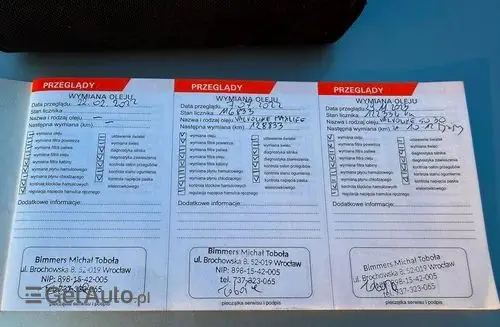 PRZEGLĄDY
WYMIANA OLEJU
Data przeglądu: 22.02.2022
Stan licznika
Nazwa i rodzaj oleju
Następna wymiana (km)
wymiana oleju
wymiana filtra powietrza
wymiana filtra paliwa
wymiana filtra oleju
wymiana filtra kabiny
wymiana płynu hamulcowego
wymiana płynu chłodzącego
kontrola klocków hamulcowych
regulacja napięcia hamulca ręcznego
ustawienie świateł
wymiana świec
diagnostyka silnika
diagnostyka zawieszenia
kontrola osłon przegubów
kontrola stanu ogumienia
kontrola napięcia paska
Dodatkowe informacje:
Bimmers Michał Toboła
ul. Brochowska 8, 52-019 Wrocław
NIP: 898-15-42-005
tel. 737-323-065
pieczątka serwisu i podpis
PRZEGLĄDY
WYMIANA OLEJU
Data przeglądu:
Stan licznika 116833
Nazwa i rodzaj oleju VALVOLINE MAXLIFE
Następna wymiana (km) 128833
wymiana oleju
wymiana filtra powietrza
wymiana filtra paliwa
wymiana filtra oleju
wymiana filtra kabiny
wymiana płynu hamulcowego
wymiana płynu chłodzącego
kontrola klocków hamulcowych
regulacja napięcia hamulca ręcznego
ustawienie świateł
wymiana świec
diagnostyka silnika
diagnostyka zawieszenia
kontrola osłon przegubów
kontrola stanu ogumienia
kontrola napięcia paska
Dodatkowe informacje:
Bimmers Michał Toboła
ul. Brochowska 8, 52-019 Wrocław
NIP: 898-15-42-005
tel. 737-323-065
pieczątka serwisu i podpis
PRZEGLĄDY
WYMIANA OLEJU
Data przeglądu:
Stan licznika
Nazwa i rodzaj oleju VALVOLINE 5W30
Następna wymiana (km)
wymiana oleju
wymiana filtra powietrza
wymiana filtra paliwa
wymiana filtra oleju
wymiana filtra kabiny
wymiana płynu hamulcowego
wymiana płynu chłodzącego
kontrola klocków hamulcowych
regulacja napięcia hamulca ręcznego
ustawienie świateł
wymiana świec
diagnostyka silnika
diagnostyka zawieszenia
kontrola osłon przegubów
kontrola stanu ogumienia
kontrola napięcia paska
Dodatkowe informacje:
Bimmers Michał Toboła
ul. Brochowska 8, 52-019 Wrocław
NIP: 898-15-42-005
tel. 737-323-065
pieczątka serwisu i podpis
GetAuto.pl